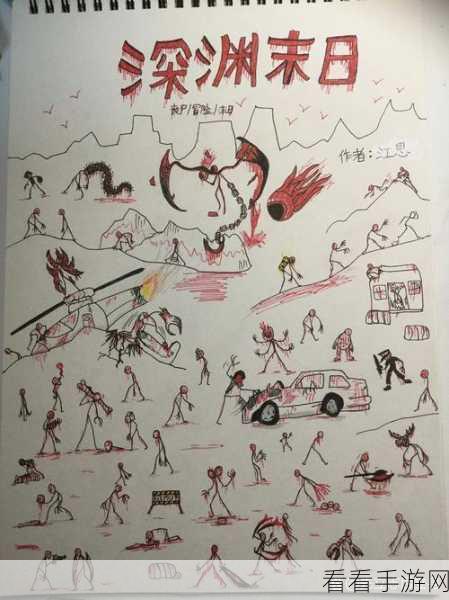 深渊末日
丧尸/冒险/末日
作者:江思
看看手游网